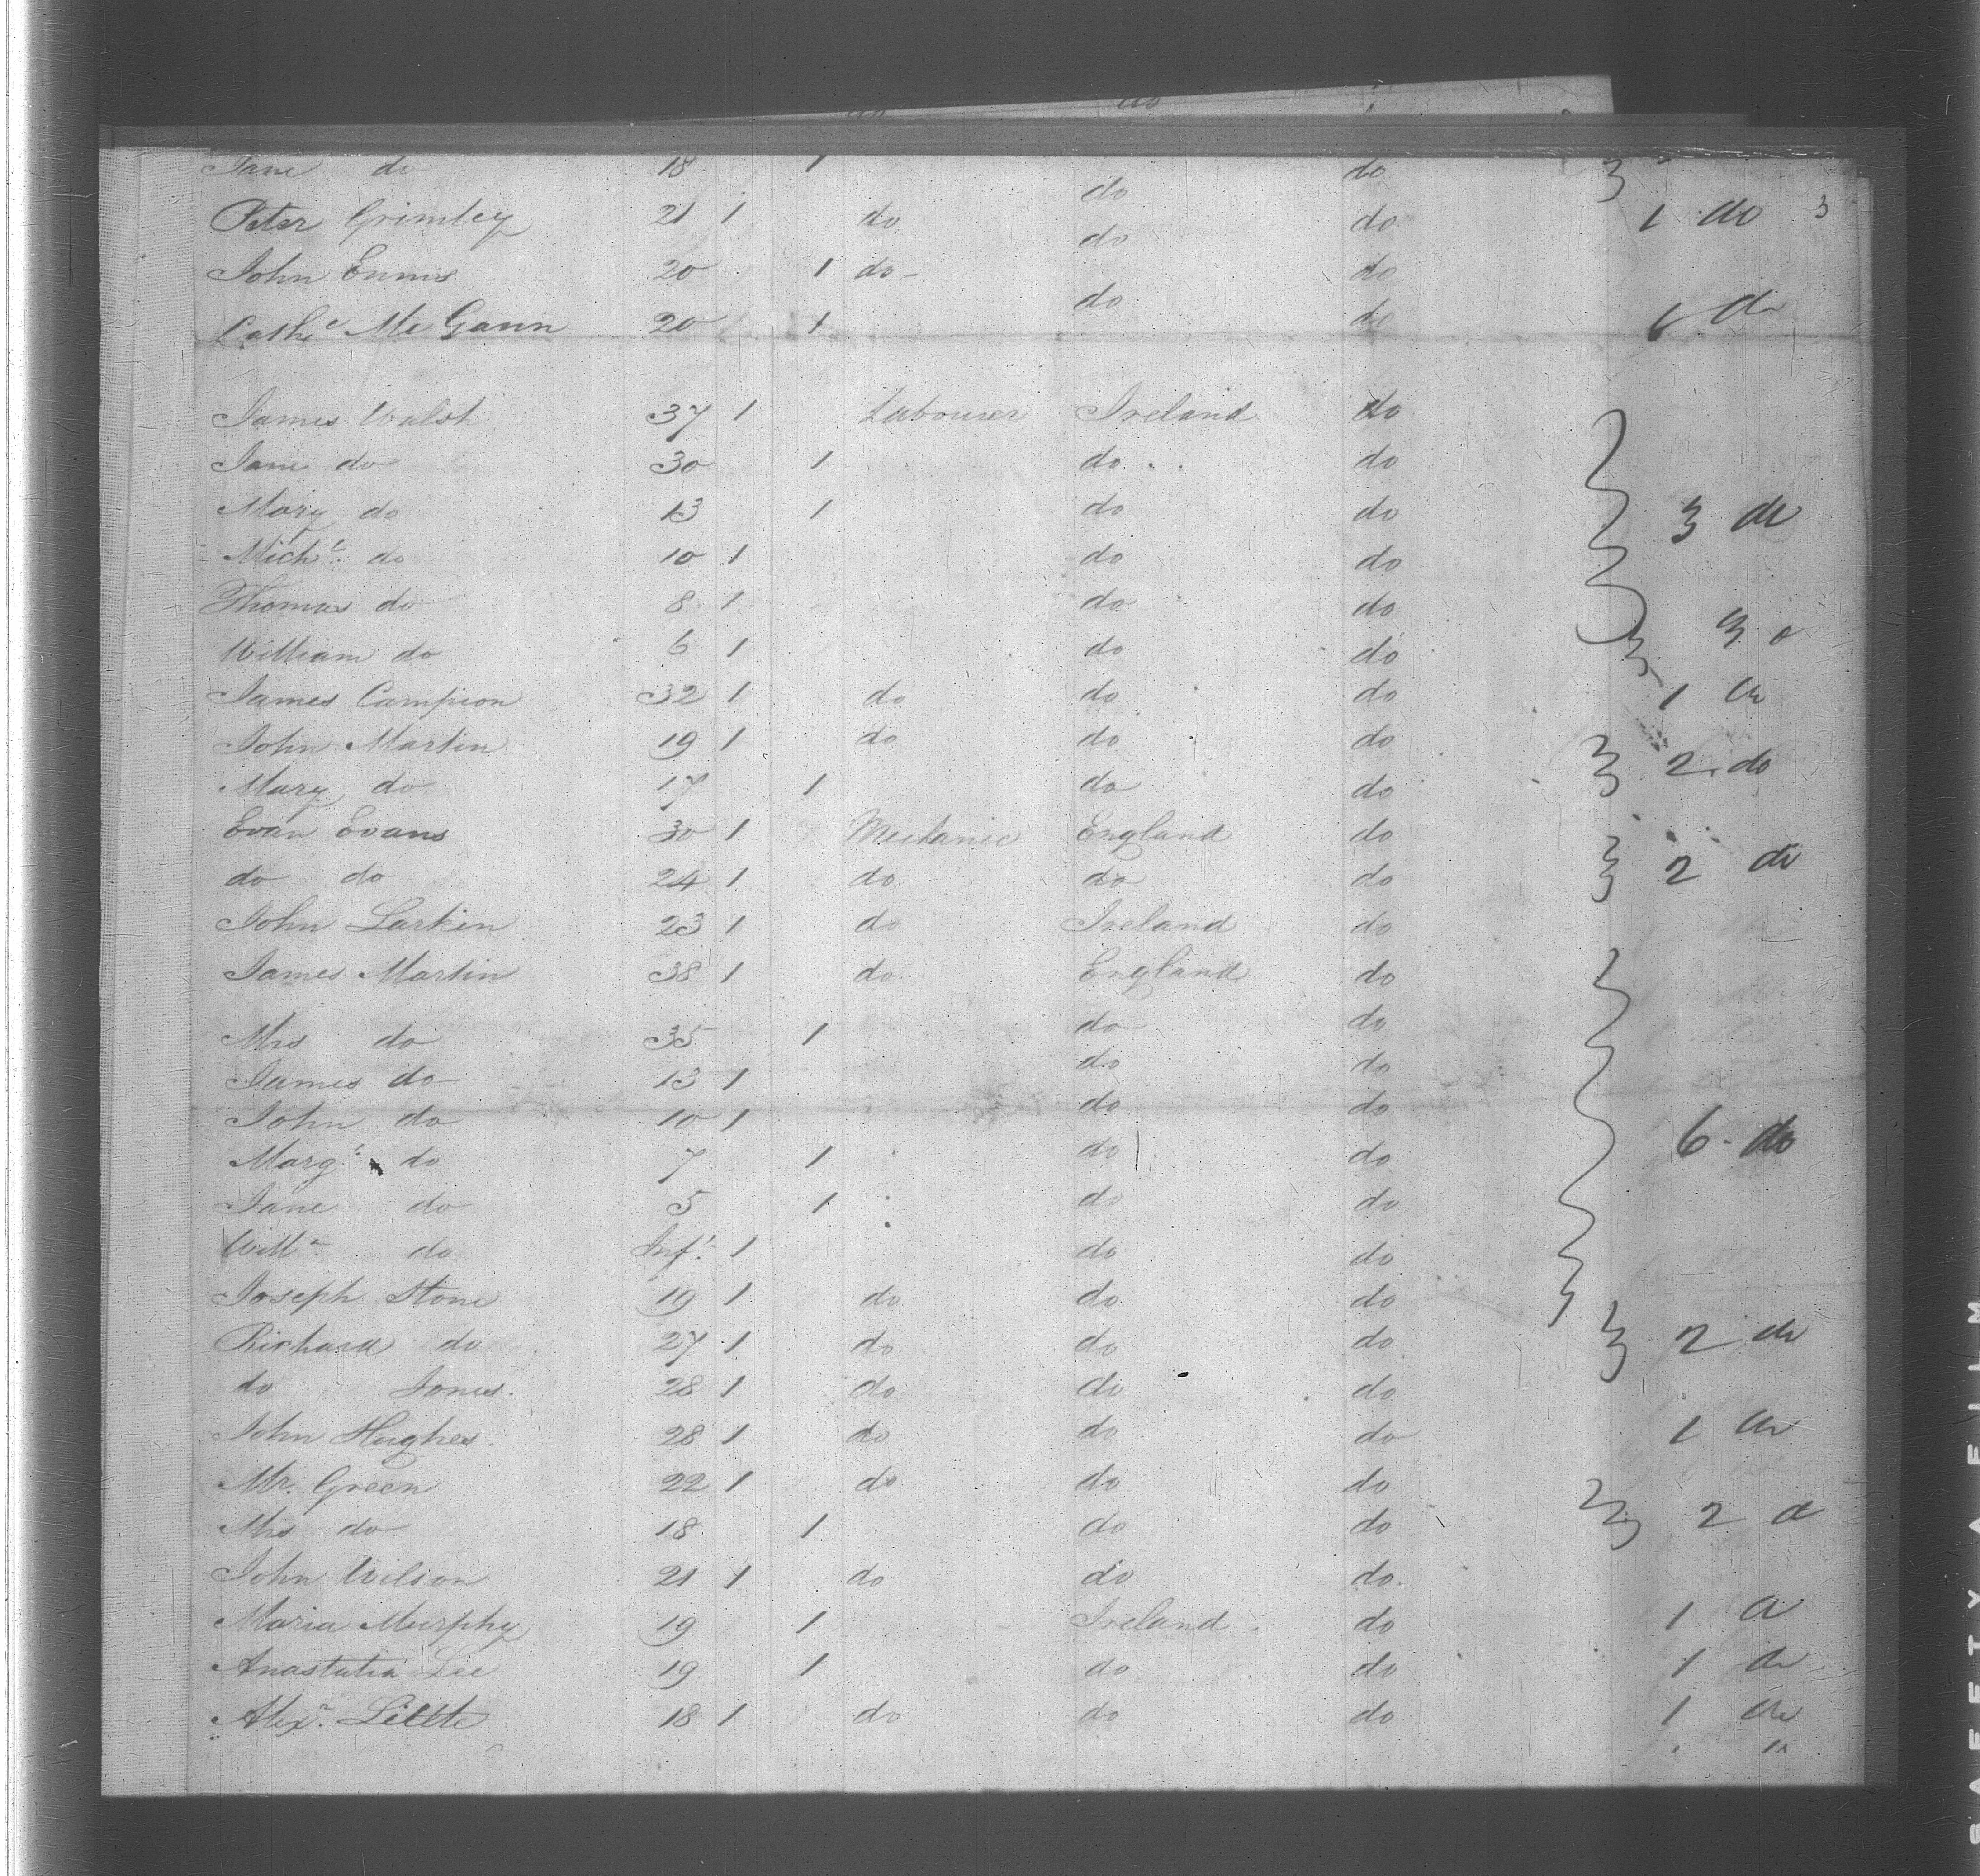 do
Jane do 18 1 do do
Peter Grimley 21 1 do do do 1 do 3
John Ennis 20 1 do do do
Cathe Mc Gann 20 1 do do
James Walsh 37 1 Labourer Ireland do
Jane do 30 1 do do
Mary do 13 1 do do 3 do
Michl do 10 1 do do
Thomas do 8 1 do do
William do 6 1 do do
James Campion 32 1 do do do 1 do
John Martin 19 1 do do do
Mary do 17 1 do do 2 do
Evan Evans 30 1 Mechanic England do
do do 24 1 do do do 2 do
John Larkin 23 1 do Ireland do
James Martin 38 1 do England do
Mrs do 35 1 do do
James do 13 1 do do
John do 10 1 do do
Margt do 7 1 do do 6 do
Jane do 5 1 do do
Willm do Inft 1 do do
Joseph Stone 19 1 do do do
Richard do 27 1 do do do 2 do
do Jones. 28 1 do do do
John Hughes. 28 1 do do do 1 do
Mr. Green 22 1 do do do
Mrs do 18 1 do do 2 d
John Wilson 21 1 do do do.
Maria Murphy 19 1 Ireland do 1 d
Anastatia Lee 19 1 do do 1 do
Alexr. Little 18 1 do do do 1 do
SAFETY FILM